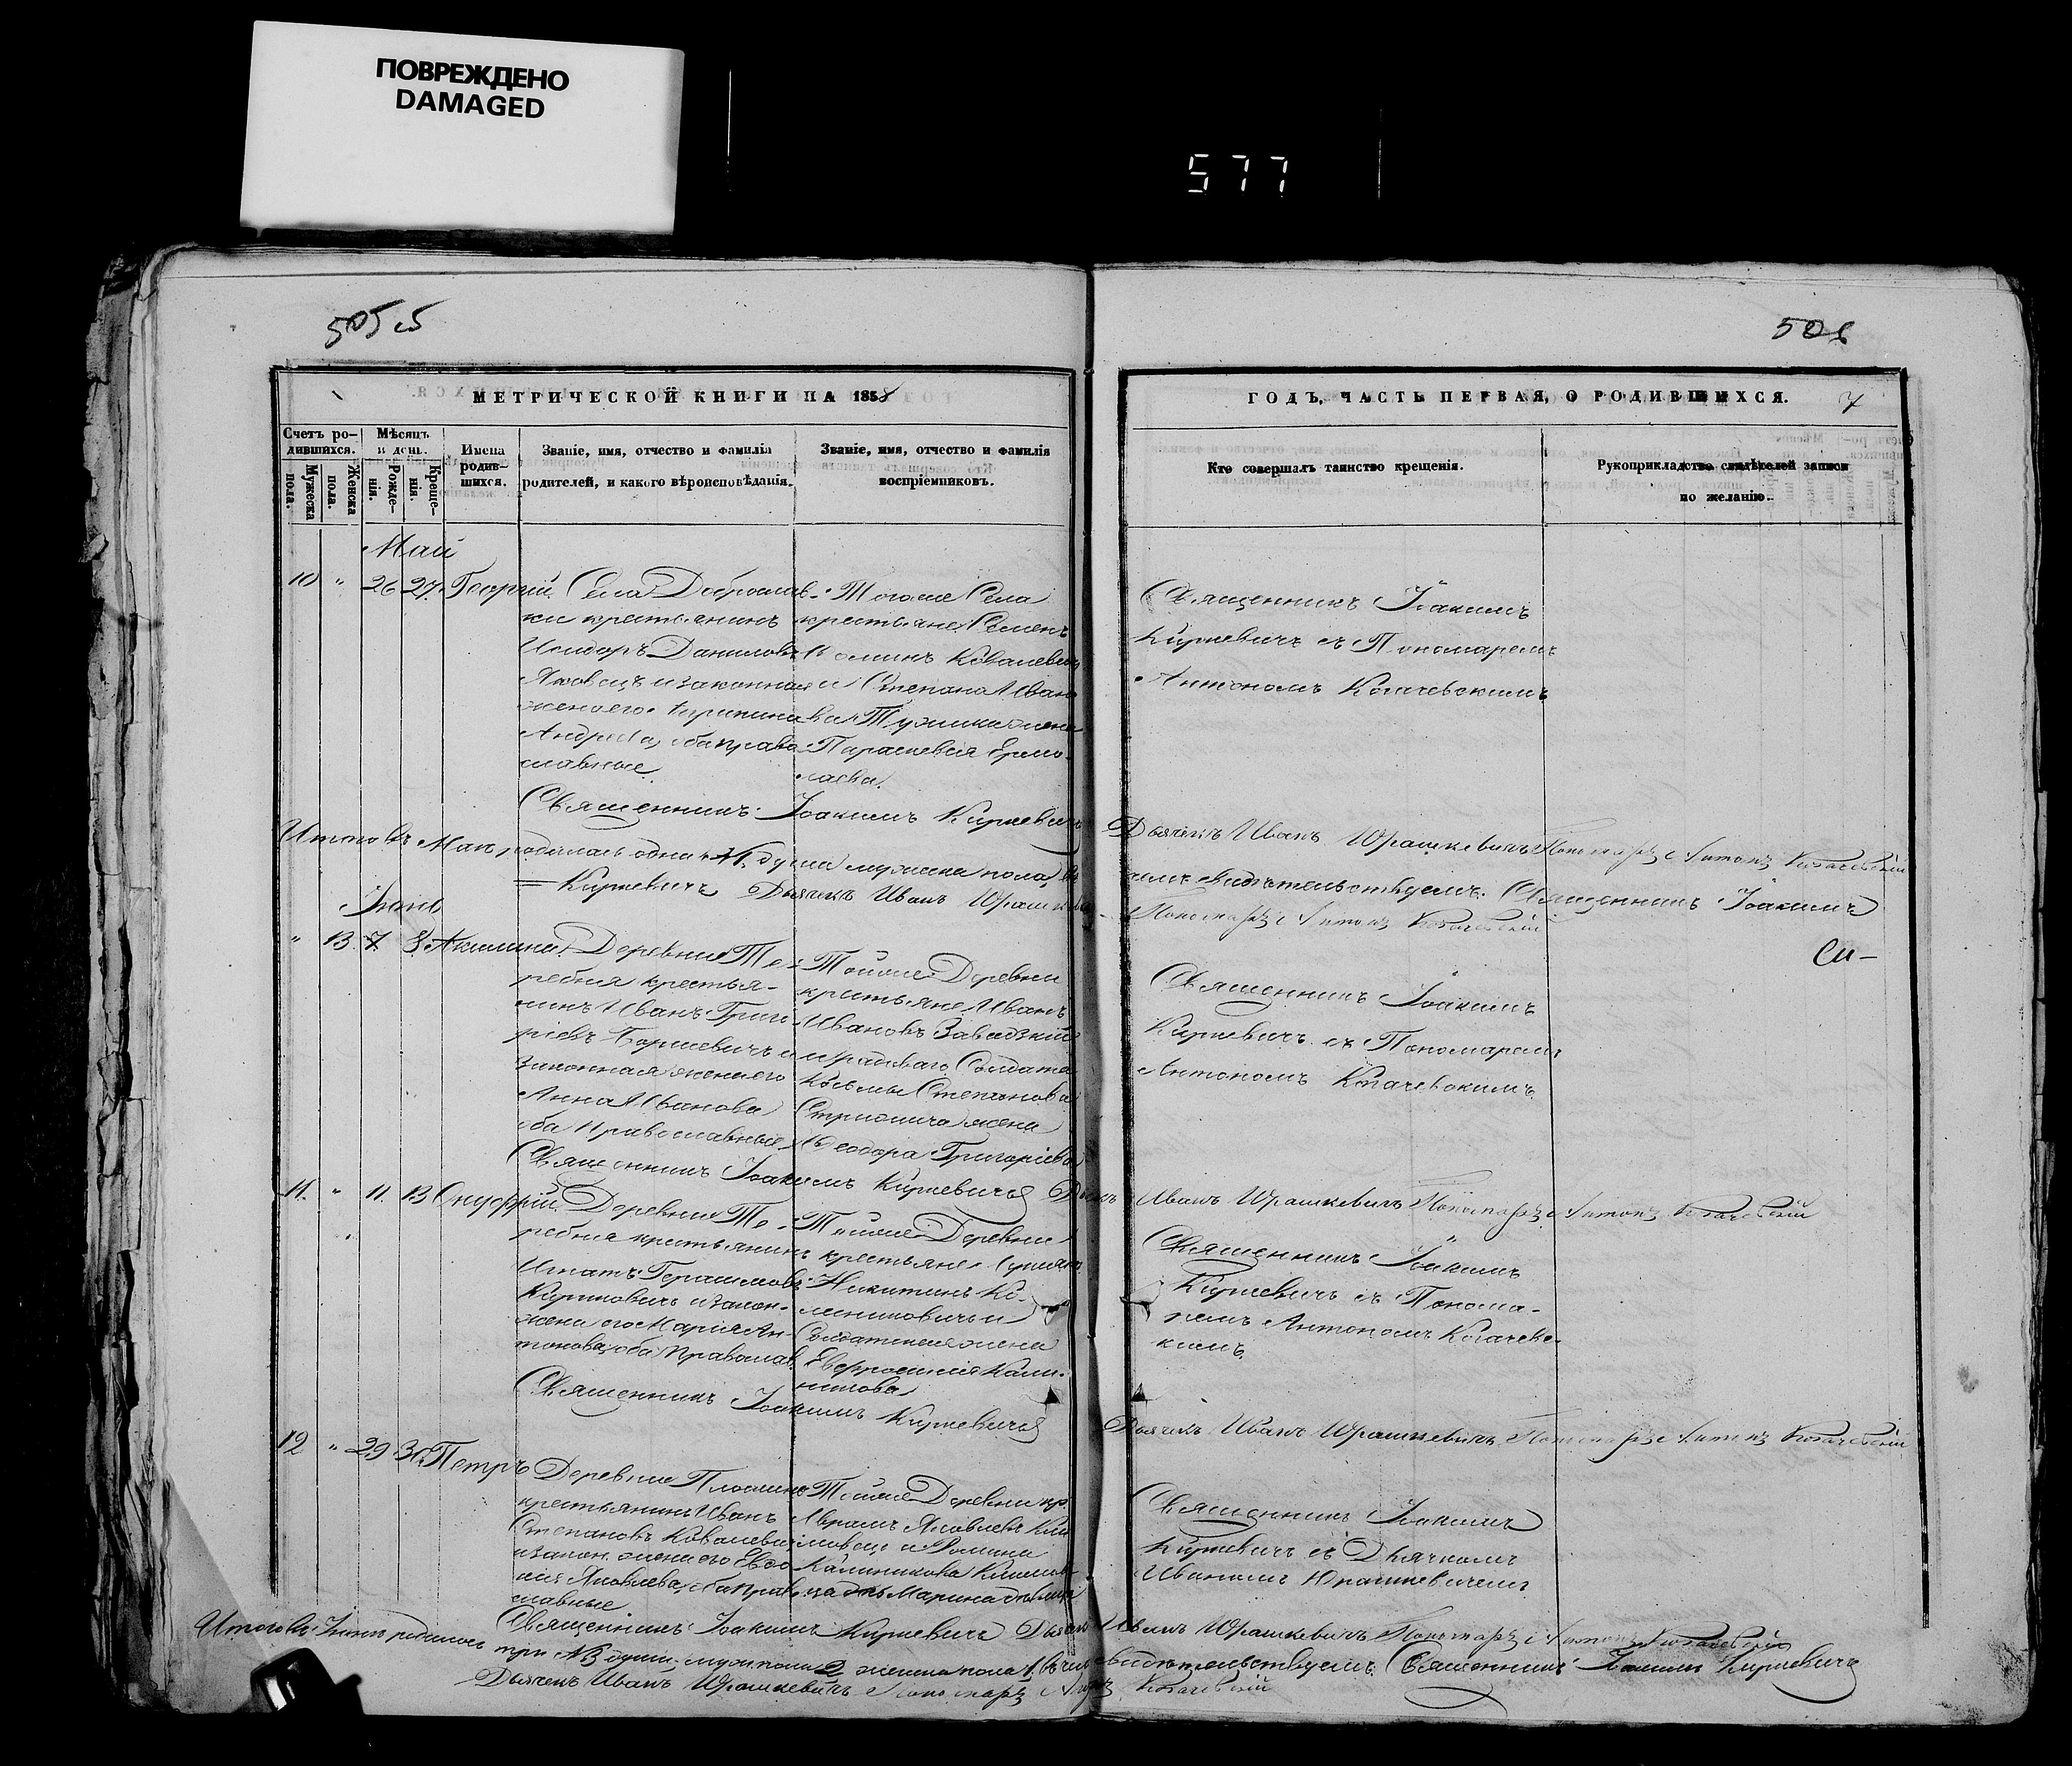 ПОВРЕЖДЕНО
DAMAGED
577
505
506
МЕТРИЧЕСКОЙ КНИГИ НА 1858
ГОДЪ, ЧАСТЬ ПЕРВАЯ, О РОДИВШИХСЯ.
7
Счетъ ро-
дившихся.
Мужеска
пола.
Женска
пола.
Мѣсяцъ
и день.
Рожде-
нія.
Креще-
нія.
Имена
родив-
шихся.
Званіе, имя, отчество и фамилія
родителей, и какого вѣроисповѣданія.
Званіе, имя, отчество и фамилія
воспріемниковъ.
Кто совершалъ таинство крещенія.
Рукоприкладство свидѣтелей записи
по желанію.
Май
10 " 26 27 Георгій
Села Доброслав-
ки крестьянинъ
Исидоръ Даниловъ
Яковецъ и законная
жена его
Андреева, оба право-
славные
Тогоже Села
крестьяне Семенъ
Ковалевичъ
и Степана Ивано-
ва жена
Параскевія Ермо-
лаева.
Священникъ Іоакимъ
Киркевичъ съ Пономаремъ
Антономъ Когачевскимъ
Священникъ Іоакимъ Киркевичъ
Дьячекъ Иванъ Юрашкевичъ Пономарь Антонъ Когачевскій
Итого въ Маѣ родилась одна №1 душа мужска пола, въ
чемъ свидѣтельствуемъ. Священникъ Іоакимъ
Киркевичъ Дьячекъ Иванъ Юрашкевичъ
Пономарь Антонъ Когачевскій
Іюнь
" 13 7 8 Акилина
Деревни Те-
ребня крестья-
нинъ Иванъ Григо-
ріевъ и
законная жена его
Анна Иванова
оба православные
Тойже Деревни
крестьяне Иванъ
Ивановъ Завадзкій
и рядоваго Солдата
Козьмы Степанова
жена
Ѳеодора Григоріева
Священникъ Іоакимъ
Киркевичъ съ Пономаремъ
Антономъ Когачевскимъ
Священникъ Іоакимъ Киркевичъ
Иванъ Юрашкевичъ Пономарь Антонъ Когачевскій
11 " 11 13 Онуфрій
Деревни Те-
ребня крестьянинъ
Игнатъ Герасимовъ
и закон.
жена его Марія Ан-
тонова, оба православ.
Тойже Деревни
крестьяне
Никитинъ
и
Солдатская жена
Евфросинія Кали-
никова
Священникъ Іоакимъ
Киркевичъ съ Понома-
ремъ Антономъ Когачевс-
кимъ
Священникъ Іоакимъ Киркевичъ
Дьячекъ Иванъ Юрашкевичъ Пономарь Антонъ Когачевскій
12 " 29 30 Петръ
Деревни
крестьянинъ Иванъ
Степановъ Ковалевичъ
и закон. жена его Евдо-
кія Яковлева, оба право-
славные
Тойже Деревни кр.
Аврамъ Яковлевъ
и
Калиникова
Марина
Священникъ Іоакимъ
Киркевичъ съ Дьячкомъ
Иваномъ Юрашкевичемъ
Священникъ Іоакимъ Киркевичъ Дьячекъ Иванъ Юрашкевичъ Пономарь Антонъ Когачевскій
Итого въ Іюнѣ родилось три №3 души, муж. пола 2 женска пола 1, въ чемъ свидѣтельствуемъ. Священникъ Іоакимъ Киркевичъ
Дьячекъ Иванъ Юрашкевичъ Пономарь Антонъ Когачевскій